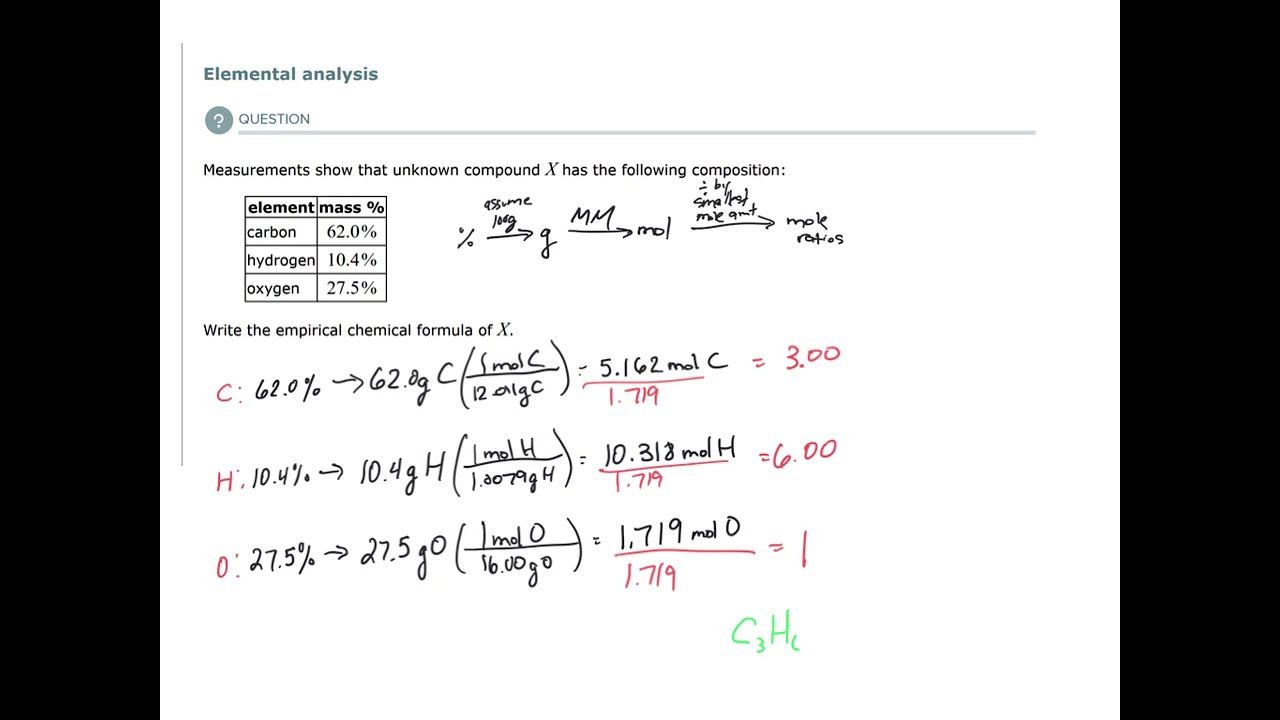 Elemental analysis
? QUESTION
Measurements show that unknown compound X has the following composition:
element mass %
carbon 62.0%
hydrogen 10.4%
oxygen 27.5%
% assume 100g → g MM → mol ÷ by smallest mole amt → mole ratios
Write the empirical chemical formula of X.
C: 62.0% → 62.0g C (1 mol C / 12.01g C) = 5.162 mol C / 1.719 = 3.00
H: 10.4% → 10.4g H (1 mol H / 1.0079g H) = 10.318 mol H / 1.719 = 6.00
O: 27.5% → 27.5 g O (1 mol O / 16.00 g O) = 1.719 mol O / 1.719 = 1
C₃H